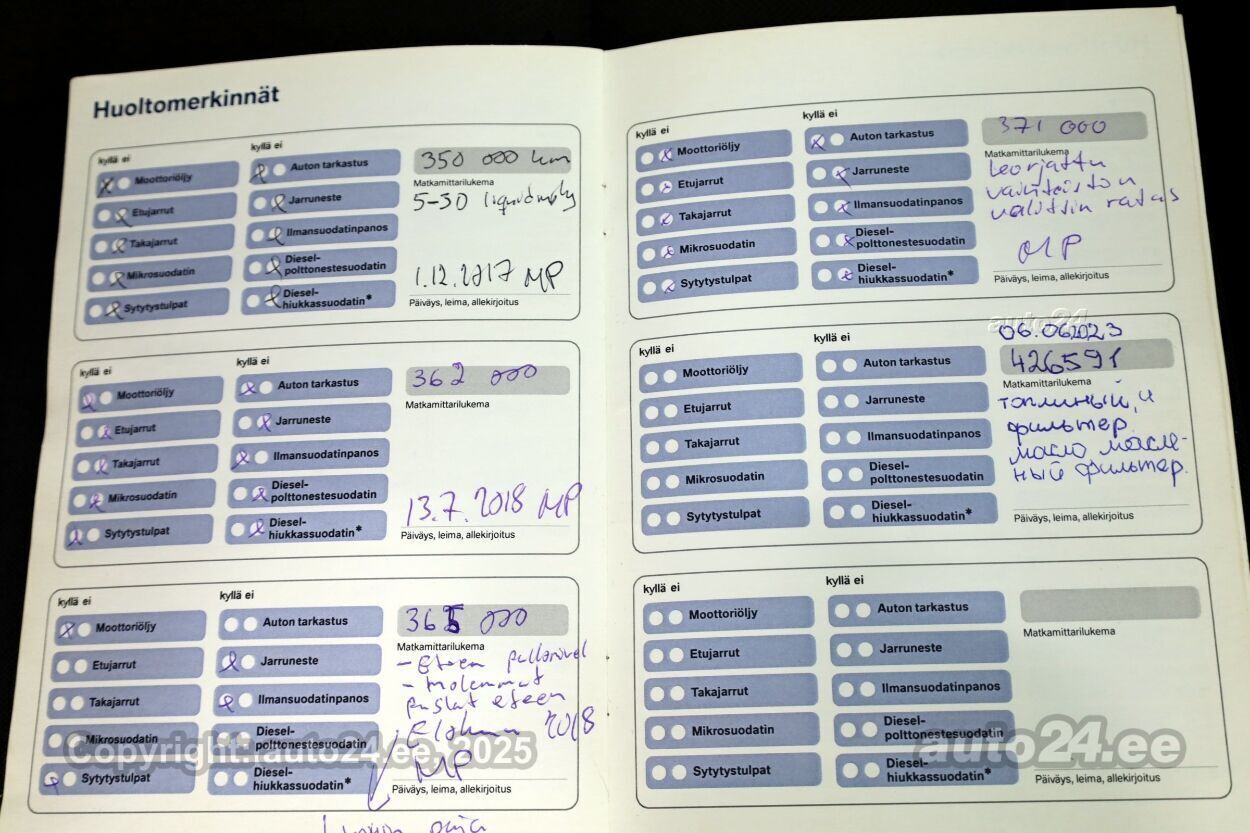 Huoltomerkinnät
kyllä ei
kyllä ei
Moottoriöljy
Etujarrut
Takajarrut
Mikrosuodatin
Sytytystulpat
Auton tarkastus
Jarruneste
Ilmansuodatinpanos
Diesel-
polttonestesuodatin
Diesel-
hiukkassuodatin*
350 000 km
Matkamittarilukema
5-30 liquimoly
1.12.2017 MP
Päiväys, leima, allekirjoitus
kyllä ei
kyllä ei
Moottoriöljy
Etujarrut
Takajarrut
Mikrosuodatin
Sytytystulpat
Auton tarkastus
Jarruneste
Ilmansuodatinpanos
Diesel-
polttonestesuodatin
Diesel-
hiukkassuodatin*
362 000
Matkamittarilukema
13.7.2018 MP
Päiväys, leima, allekirjoitus
kyllä ei
kyllä ei
Moottoriöljy
Etujarrut
Takajarrut
Mikrosuodatin
Sytytystulpat
Auton tarkastus
Jarruneste
Ilmansuodatinpanos
Diesel-
polttonestesuodatin
Diesel-
hiukkassuodatin*
365 000
Matkamittarilukema
- Eteen
- Molemmat
puslat eteen
Elokuu 2018
MP
Päiväys, leima, allekirjoitus
kyllä ei
kyllä ei
Moottoriöljy
Etujarrut
Takajarrut
Mikrosuodatin
Sytytystulpat
Auton tarkastus
Jarruneste
Ilmansuodatinpanos
Diesel-
polttonestesuodatin
Diesel-
hiukkassuodatin*
371 000
Matkamittarilukema
korjattu
vaihteiston
valitsin ratas
MP
Päiväys, leima, allekirjoitus
kyllä ei
kyllä ei
Moottoriöljy
Etujarrut
Takajarrut
Mikrosuodatin
Sytytystulpat
Auton tarkastus
Jarruneste
Ilmansuodatinpanos
Diesel-
polttonestesuodatin
Diesel-
hiukkassuodatin*
auto24
06.06.2023
426591
Matkamittarilukema
топлиный, и
фильтер
масло масле-
ный фильтер.
Päiväys, leima, allekirjoitus
kyllä ei
kyllä ei
Moottoriöljy
Etujarrut
Takajarrut
Mikrosuodatin
Sytytystulpat
Auton tarkastus
Jarruneste
Ilmansuodatinpanos
Diesel-
polttonestesuodatin
Diesel-
hiukkassuodatin*
Matkamittarilukema
Päiväys, leima, allekirjoitus
Copyright: auto24.ee, 2025
auto24.ee